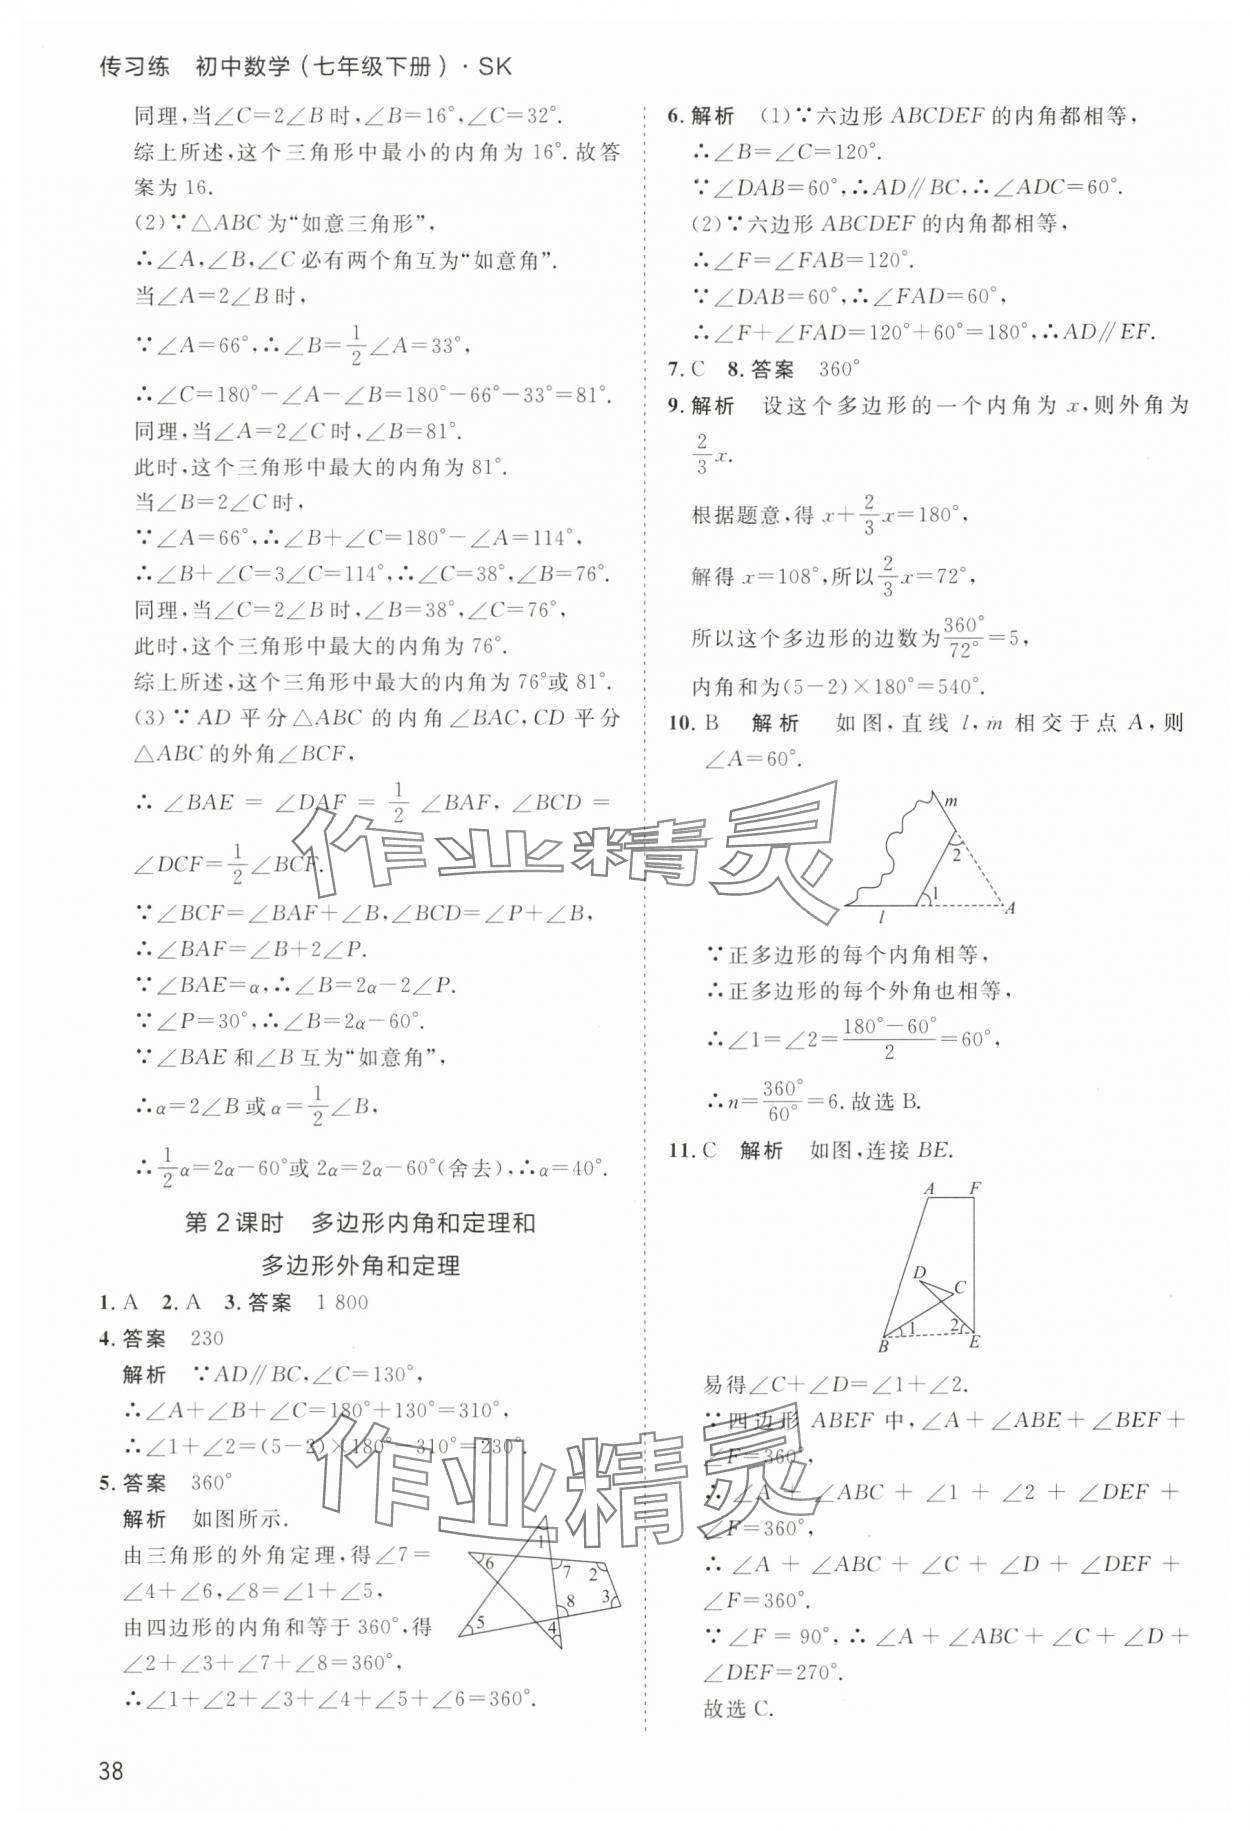 传习练 初中数学(七年级下册)·SK
同理,当∠C=2∠B时,∠B=16°,∠C=32°.
综上所述,这个三角形中最小的内角为16°.故答
案为16.
(2)∵△ABC为“如意三角形”,
∴∠A,∠B,∠C必有两个角互为“如意角”.
当∠A=2∠B时,
∵∠A=66°,∴∠B=1/2∠A=33°,
∴∠C=180°-∠A-∠B=180°-66°-33°=81°.
同理,当∠A=2∠C时,∠B=81°.
此时,这个三角形中最大的内角为81°.
当∠B=2∠C时,
∵∠A=66°,∴∠B+∠C=180°-∠A=114°,
∴∠B+∠C=3∠C=114°,∴∠C=38°,∠B=76°.
同理,当∠C=2∠B时,∠B=38°,∠C=76°,
此时,这个三角形中最大的内角为76°.
综上所述,这个三角形中最大的内角为76°或81°.
(3)∵AD平分△ABC的内角∠BAC,CD平分
△ABC的外角∠BCF,
∴∠BAE=∠DAF=1/2∠BAF,∠BCD=
∠DCF=1/2∠BCF.
∵∠BCF=∠BAF+∠B,∠BCD=∠P+∠B,
∴∠BAF=∠B+2∠P.
∵∠BAE=α,∴∠B=2α-2∠P.
∵∠P=30°,∴∠B=2α-60°.
∵∠BAE和∠B互为“如意角”,
∴α=2∠B或α=1/2∠B,
∴1/2α=2α-60°或2α=2α-60°(舍去),∴α=40°.
第2课时 多边形内角和定理和
多边形外角和定理
1.A 2.A 3.答案 1 800
4.答案 230
解析 ∵AD∥BC,∠C=130°,
∴∠A+∠B+∠C=180°+130°=310°,
∴∠1+∠2=(5-2)×180°-310°=230°.
5.答案 360°
解析 如图所示.
由三角形的外角定理,得∠7=
∠4+∠6,∠8=∠1+∠5,
由四边形的内角和等于360°,得
∠2+∠3+∠7+∠8=360°,
∴∠1+∠2+∠3+∠4+∠5+∠6=360°.
1
6
7
2
8
3
5
4
6.解析 (1)∵六边形ABCDEF的内角都相等,
∴∠B=∠C=120°.
∵∠DAB=60°,∴AD∥BC,∴∠ADC=60°.
(2)∵六边形ABCDEF的内角都相等,
∴∠F=∠FAB=120°.
∵∠DAB=60°,∴∠FAD=60°,
∴∠F+∠FAD=120°+60°=180°,∴AD∥EF.
7.C 8.答案 360°
9.解析 设这个多边形的一个内角为x,则外角为
2/3x.
根据题意,得x+2/3x=180°,
解得x=108°,所以2/3x=72°,
所以这个多边形的边数为360°/72°=5,
内角和为(5-2)×180°=540°.
10.B 解析 如图,直线l,m相交于点A,则
∠A=60°.
m
2
1
l
A
∵正多边形的每个内角相等,
∴正多边形的每个外角也相等,
∴∠1=∠2=(180°-60°)/2=60°,
∴n=360°/60°=6.故选B.
11.C 解析 如图,连接BE.
A F
D
C
1 2
B E
易得∠C+∠D=∠1+∠2.
∵四边形ABEF中,∠A+∠ABE+∠BEF+
∠F=360°,
∴∠A+∠ABC+∠1+∠2+∠DEF+
∠F=360°,
∴∠A+∠ABC+∠C+∠D+∠DEF+
∠F=360°.
∵∠F=90°,∴∠A+∠ABC+∠C+∠D+
∠DEF=270°.
故选C.
作业精灵
作业精灵
38